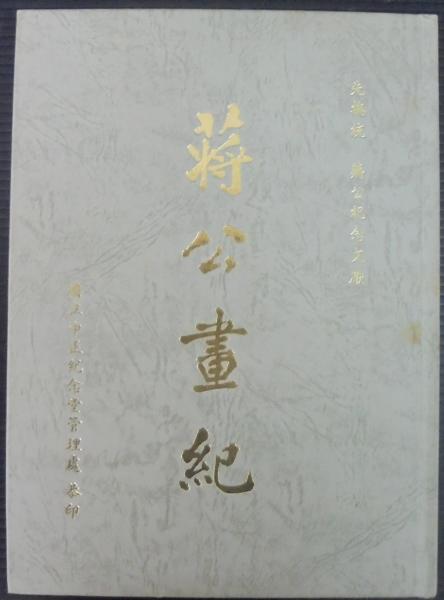 先總統 蔣公紀念文献
蔣公畫紀
國立中正紀念堂管理處 恭印